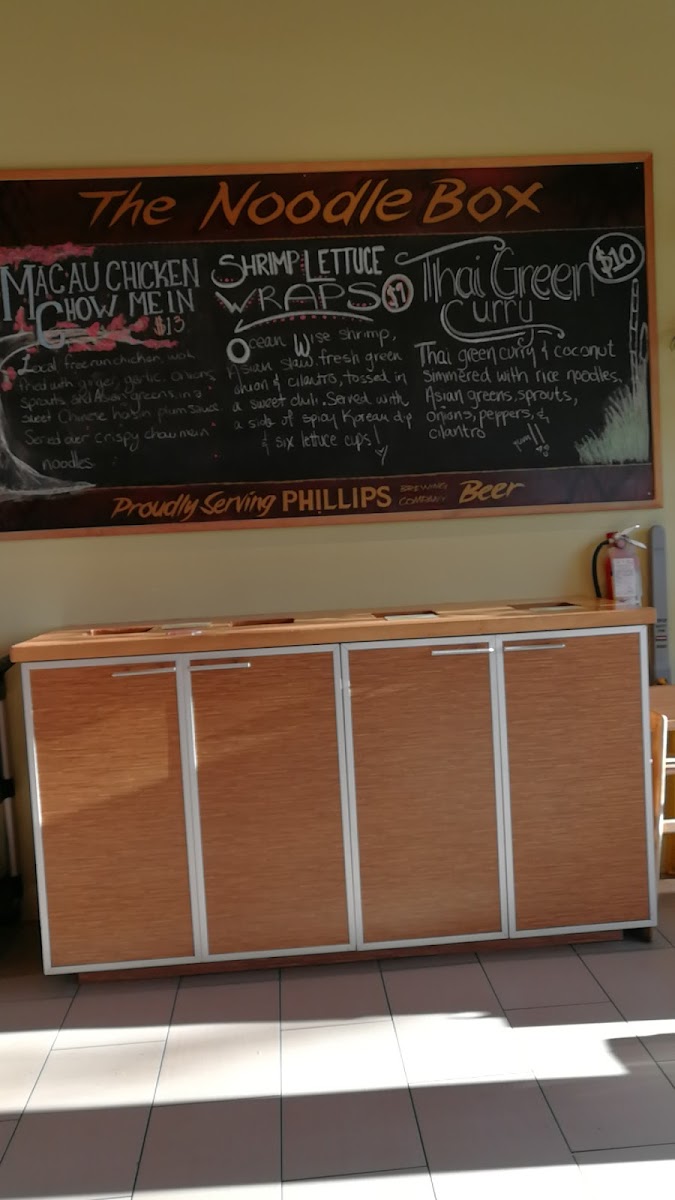 The Noodle Box
MACAU CHICKEN
CHOW MEIN
$13
Local free run chicken, wok
fried with ginger, garlic, onions,
sprouts and Asian greens in a
sweet Chinese hoisin plum sauce.
Served over crispy chow mein
noodles.
SHRIMP LETTUCE
WRAPS $7
Ocean Wise shrimp,
Asian slaw, fresh green
onion & cilantro, tossed in
a sweet chili. Served with
a side of spicy Korean dip
& six lettuce cups!
Thai Green
Curry
$10
Thai green curry & coconut
simmered with rice noodles,
Asian greens, sprouts,
onions, peppers, &
cilantro
Yum!!
Proudly Serving PHILLIPS BREWING COMPANY Beer